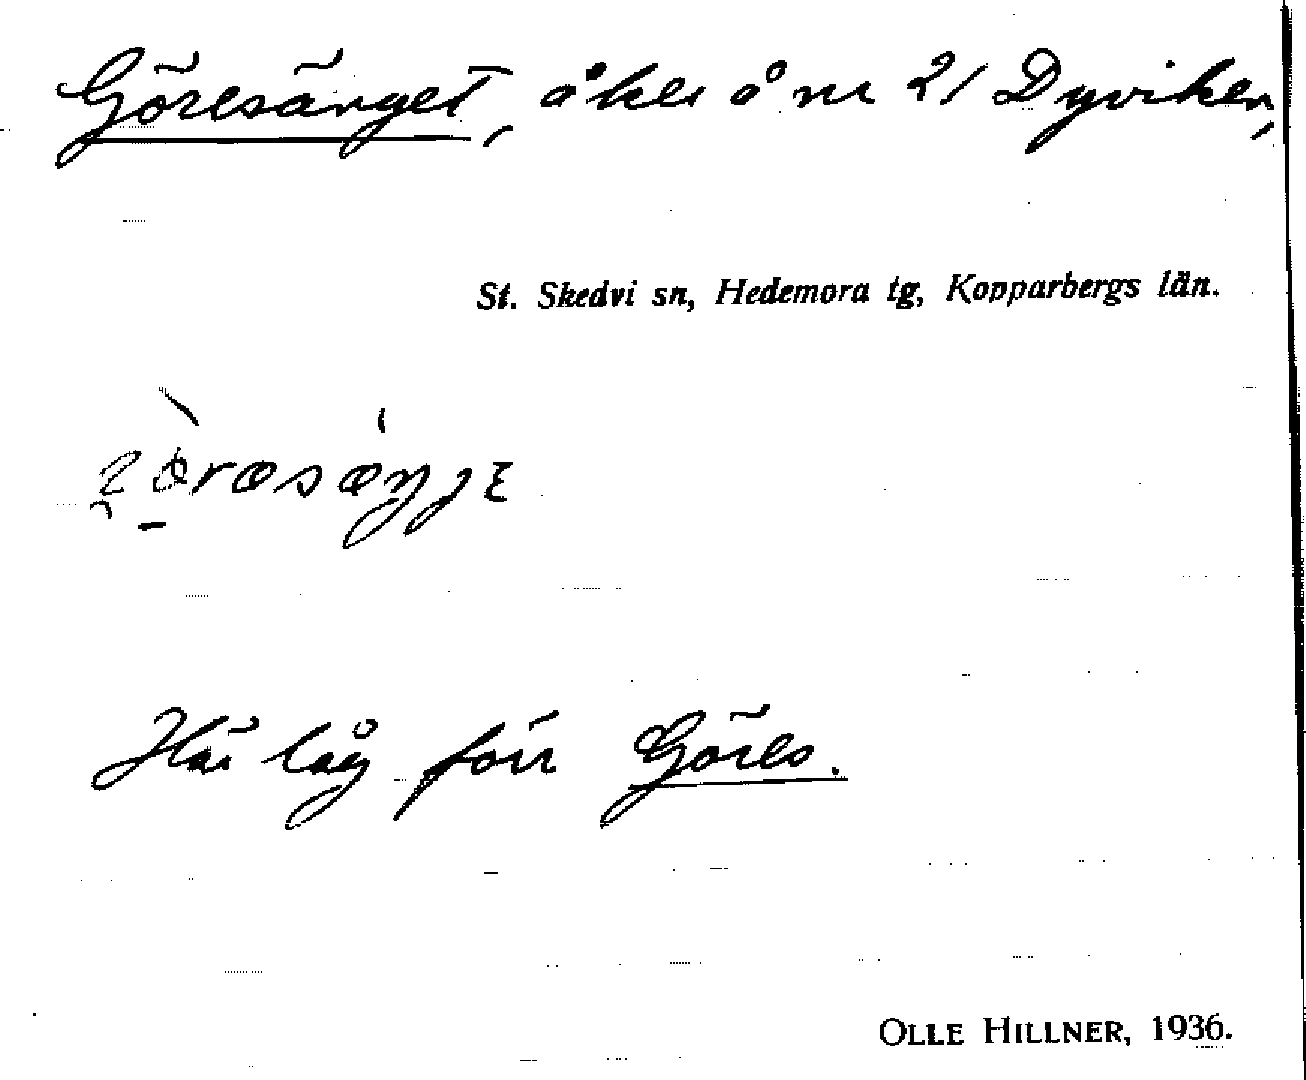 Göresänget, åker å nr 21 Dyviken,
St. Skedvi sn, Hedemora tg, Kopparbergs län.
Här låg förr Göres.
OLLE HILLNER, 1936.